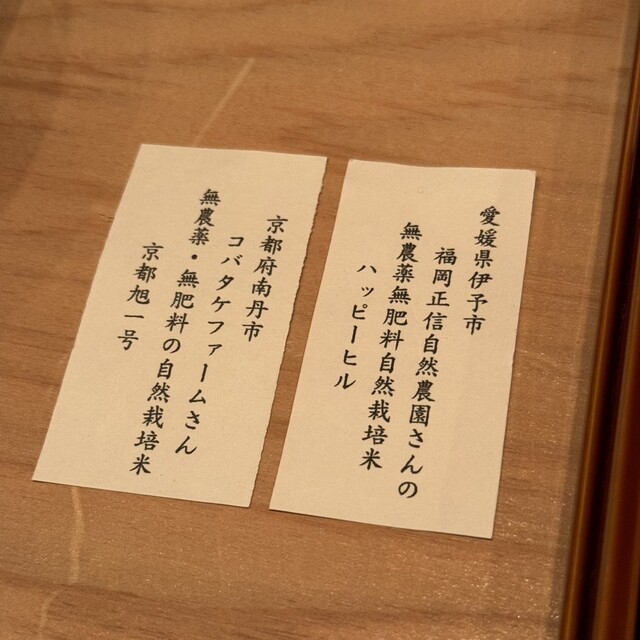 愛媛県伊予市
福岡正信自然農園さんの
無農薬無肥料自然栽培米
ハッピーヒル
京都府南丹市
コバタケファームさん
無農薬・無肥料の自然栽培米
京都旭一号